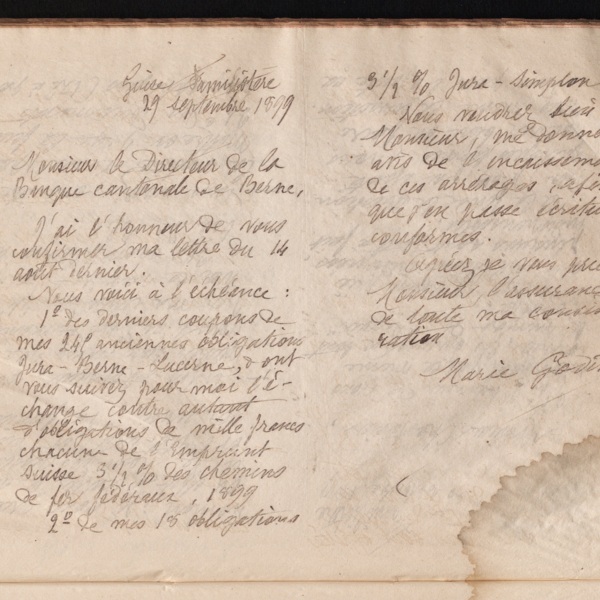 Guise Familistère
29 septembre 1899
Monsieur le Directeur de la
Banque cantonale de Berne,
J'ai l'honneur de vous
confirmer ma lettre du 14
août dernier.
Nous voici à l'échéance :
1º des derniers coupons de
mes 24 anciennes obligations
Jura-Berne-Lucerne, dont
vous suivez pour moi l'é-
change contre autant
d'obligations de mille francs
chacune de l'Emprunt
suisse 3 1/2 % des chemins
de fer fédéraux, 1899
2º de mes 18 obligations
3 1/2 % Jura-Simplon
Vous voudrez bien
Monsieur, me donne
avis de l'encaisseme
de ces arrérages afi
que j'en passe écritu
conformes.
Agréez, je vous prie
Monsieur l'assuranc
de toute ma consi
ration
Marie Godi